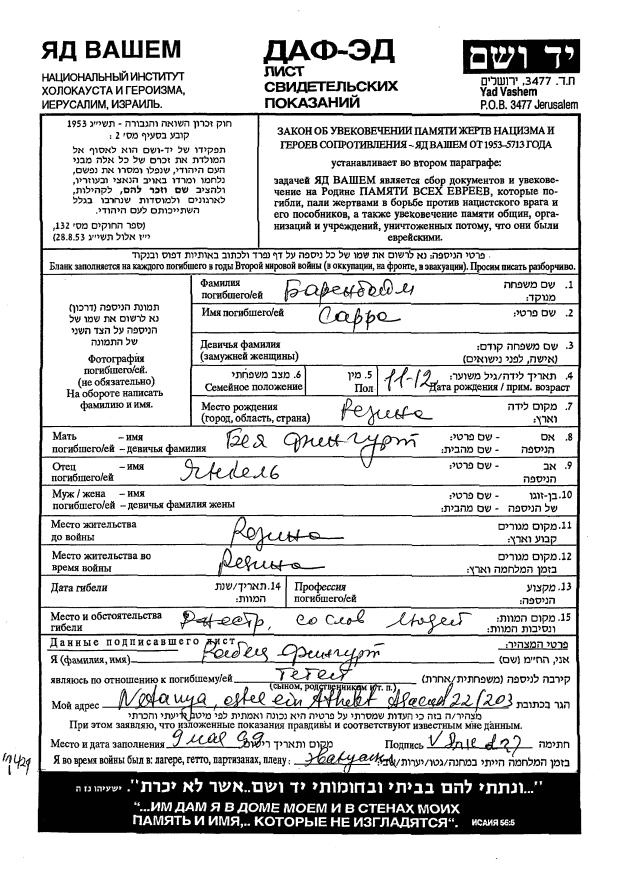 ЯД ВАШЕМ
НАЦИОНАЛЬНЫЙ ИНСТИТУТ
ХОЛОКАУСТА И ГЕРОИЗМА,
ИЕРУСАЛИМ, ИЗРАИЛЬ.
ДАФ-ЭД
ЛИСТ
СВИДЕТЕЛЬСКИХ
ПОКАЗАНИЙ
יד ושם
ת.ד. 3477, ירושלים
Yad Vashem
P.O.B. 3477 Jerusalem
חוק זכרון השואה והגבורה - תשי״ג 1953
קובע בסעיף מס׳ 2 :
תפקידו של יד-ושם הוא לאסוף אל
המולדת את זכרם של כל אלה מבני
העם היהודי, שנפלו ומסרו את נפשם,
נלחמו ומרדו באויב הנאצי ובעוזריו,
ולהציב שם וזכר להם, לקהילות,
לארגונים ולמוסדות שנחרבו בגלל
השתייכותם לעם היהודי.
(ספר החוקים מס׳ 132,
י״ז אלול תשי״ג 28.8.53)
ЗАКОН ОБ УВЕКОВЕЧЕНИИ ПАМЯТИ ЖЕРТВ НАЦИЗМА И
ГЕРОЕВ СОПРОТИВЛЕНИЯ – ЯД ВАШЕМ ОТ 1953–5713 ГОДА
устанавливает во втором параграфе:
задачей ЯД ВАШЕМ является сбор документов и увековече-
ние на Родине ПАМЯТИ ВСЕХ ЕВРЕЕВ, которые по-
гибли, пали жертвами в борьбе против нацистского врага и
его пособников, а также увековечение памяти общин, орга-
низаций и учреждений, уничтоженных потому, что они были
еврейскими.
פרטי הניספה: נא לרשום את שמו של כל ניספה על דף נפרד ולכתוב באותיות דפוס ובנקוד
Бланк заполняется на каждого погибшего в годы Второй мировой войны (в оккупации, на фронте, в эвакуации). Просим писать разборчиво.
תמונת הניספה (דרכון)
נא לרשום את שמו של
הניספה על הצד השני
של התמונה
Фотография
погибшего/ей.
(не обязательно)
На обороте написать
фамилию и имя.
Фамилия
погибшего/ей Баренбойм 1. שם משפחה
מנוקד:
Имя погибшего/ей Сарра 2. שם פרטי:
Девичья фамилия
(замужней женщины) 3. שם משפחה קודם:
(אישה, לפני נישואים)
6. מצב משפחתי
Семейное положение
5. מין
Пол
11-12 4. תאריך לידה/גיל משוער:
Дата рождения / прим. возраст
Место рождения
(город, область, страна) Резина 7. מקום לידה
וארץ:
Мать – имя
погибшего/ей – девичья фамилия Бея Фингурт 8. אם - שם פרטי:
הניספה - שם מהבית:
Отец – имя
погибшего/ей Янкель 9. אב - שם פרטי:
הניספה
Муж / жена – имя
погибшего/ей – девичья фамилия жены 10. בן-זוגו - שם פרטי:
של הניספה - שם מהבית:
Место жительства
до войны Резина 11. מקום מגורים
קבוע וארץ:
Место жительства во
время войны Резина 12. מקום מגורים
בזמן המלחמה וארץ:
Дата гибели 14. תאריך/שנת
המוות:
Профессия
погибшего/ей 13. מקצוע
הניספה:
Место и обстоятельства
гибели Днестр, со слов людей 15. מקום המוות:
ונסיבות המוות:
Данные подписавшего лист פרטי המצהיר:
Я (фамилия, имя) Фингурт אני, החי״מ (שם)
являюсь по отношению к погибшему/ей Тетей קירבה לניספה (משפחתית/אחרת)
(сыном, родственником и т. п.)
Мой адрес Netanya, 22/203 הגר בכתובת
מצהיר/ה בזה כי העדות שמסרתי על פרטיה היא נכונה ואמתית לפי מיטב ידיעתי והכרתי
При этом заявляю, что изложенные показания правдивы и соответствуют известным мне данным.
Место и дата заполнения 9 мая 99 מקום ותאריך רישום Подпись חתימה
Я во время войны был: в лагере, гетто, партизанах, плену: בזמן המלחמה הייתי במחנה/גטו/יערות/שבי:
"...ונתתי להם בביתי ובחומותי יד ושם...אשר לא יכרת". ישעיהו נו ה
“...ИМ ДАМ Я В ДОМЕ МОЕМ И В СТЕНАХ МОИХ
ПАМЯТЬ И ИМЯ,.. КОТОРЫЕ НЕ ИЗГЛАДЯТСЯ“. ИСАИЯ 56:5